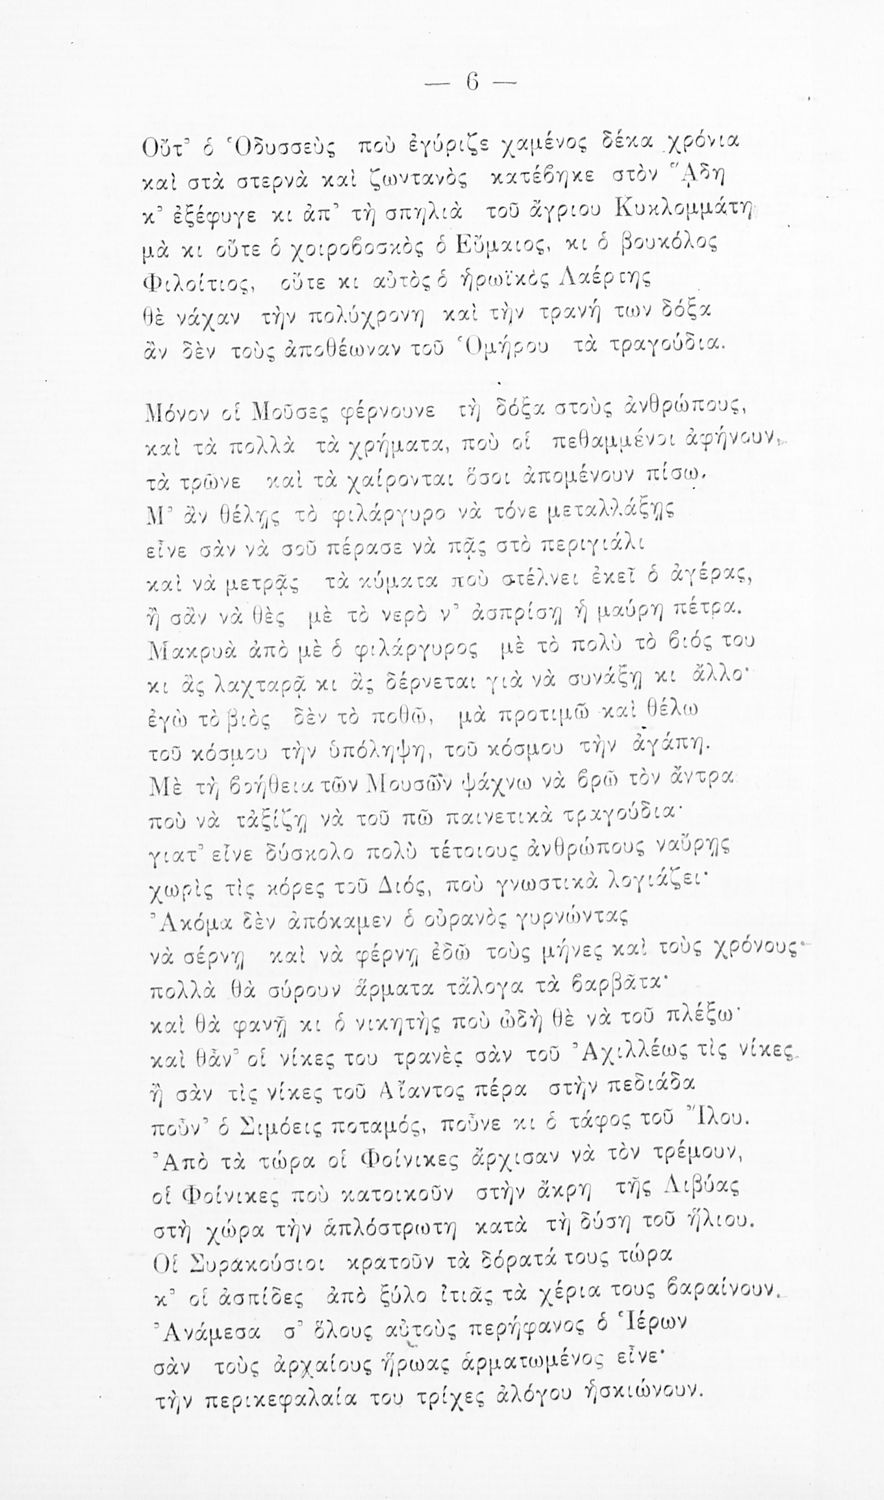 — 6 —
Οὔτ' ὁ Ὀδυσσεὺς ποὺ ἐγύριζε χαμένος δέκα χρόνια
καὶ στὰ στερνὰ καὶ ζωντανὸς κατέβηκε στὸν Ἅδη
κ' ἐξέφυγε κι ἀπ' τὴ σπηλιὰ τοῦ ἄγριου Κυκλομμάτη
μὰ κι οὔτε ὁ χοιροβοσκὸς ὁ Εὔμαιος, κι ὁ βουκόλος
Φιλοίτιος, οὔτε κι αὐτὸς ὁ ἡρωϊκὸς Λαέρτης
θὲ νάχαν τὴν πολύχρονη καὶ τὴν τρανή των δόξα
ἂν δὲν τοὺς ἀποθέωναν τοῦ Ὁμήρου τὰ τραγούδια.
Μόνον οἱ Μοῦσες φέρνουνε τὴ δόξα στοὺς ἀνθρώπους,
καὶ τὰ πολλὰ τὰ χρήματα, ποὺ οἱ πεθαμμένοι ἀφήνουν,
τὰ τρῶνε καὶ τὰ χαίρονται ὅσοι ἀπομένουν πίσω.
Μ' ἂν θέλῃς τὸ φιλάργυρο νὰ τόνε μεταλλάξῃς
εἶνε σὰν νὰ σοῦ πέρασε νὰ πᾷς στὸ περιγιάλι
καὶ νὰ μετρᾷς τὰ κύματα ποὺ στέλνει ἐκεῖ ὁ ἀγέρας,
ἢ σὰν νὰ θὲς μὲ τὸ νερὸ ν' ἀσπρίσῃ ἡ μαύρη πέτρα.
Μακρυὰ ἀπὸ μὲ ὁ φιλάργυρος μὲ τὸ πολὺ τὸ βιός του
κι ἂς λαχταρᾷ κι ἂς δέρνεται γιὰ νὰ συνάξῃ κι ἄλλο·
ἐγὼ τὸ βιὸς δὲν τὸ ποθῶ, μὰ προτιμῶ καὶ θέλω
τοῦ κόσμου τὴν ὑπόληψη, τοῦ κόσμου τὴν ἀγάπη.
Μὲ τὴ βοήθεια τῶν Μουσῶν ψάχνω νὰ βρῶ τὸν ἄντρα
ποὺ νὰ τἀξίζῃ νὰ τοῦ πῶ παινετικὰ τραγούδια·
γιατ' εἶνε δύσκολο πολὺ τέτοιους ἀνθρώπους ναὕρῃς
χωρὶς τὶς κόρες τοῦ Διός, ποὺ γνωστικὰ λογιάζει·
Ἀκόμα δὲν ἀπόκαμεν ὁ οὐρανὸς γυρνώντας
νὰ σέρνῃ καὶ νὰ φέρνῃ ἐδῶ τοὺς μῆνες καὶ τοὺς χρόνους·
πολλὰ θὰ σύρουν ἅρματα τἄλογα τὰ βαρβᾶτα·
καὶ θὰ φανῇ κι ὁ νικητὴς ποὺ ᾠδὴ θὲ νὰ τοῦ πλέξω·
καὶ θἆν' οἱ νίκες του τρανὲς σὰν τοῦ Ἀχιλλέως τὶς νίκες
ἢ σὰν τὶς νίκες τοῦ Αἴαντος πέρα στὴν πεδιάδα
ποὖν' ὁ Σιμόεις ποταμός, ποὖνε κι ὁ τάφος τοῦ Ἴλου.
Ἀπὸ τὰ τώρα οἱ Φοίνικες ἄρχισαν νὰ τὸν τρέμουν,
οἱ Φοίνικες ποὺ κατοικοῦν στὴν ἄκρη τῆς Λιβύας
στὴ χώρα τὴν ἁπλόστρωτη κατὰ τὴ δύση τοῦ ἥλιου.
Οἱ Συρακούσιοι κρατοῦν τὰ δόρατά τους τώρα
κ' οἱ ἀσπίδες ἀπὸ ξύλο ἰτιᾶς τὰ χέρια τους βαραίνουν.
Ἀνάμεσα σ' ὅλους αὐτοὺς περήφανος ὁ Ἱέρων
σὰν τοὺς ἀρχαίους ἥρωας ἁρματωμένος εἶνε·
τὴν περικεφαλαία του τρίχες ἀλόγου ἠσκιώνουν.